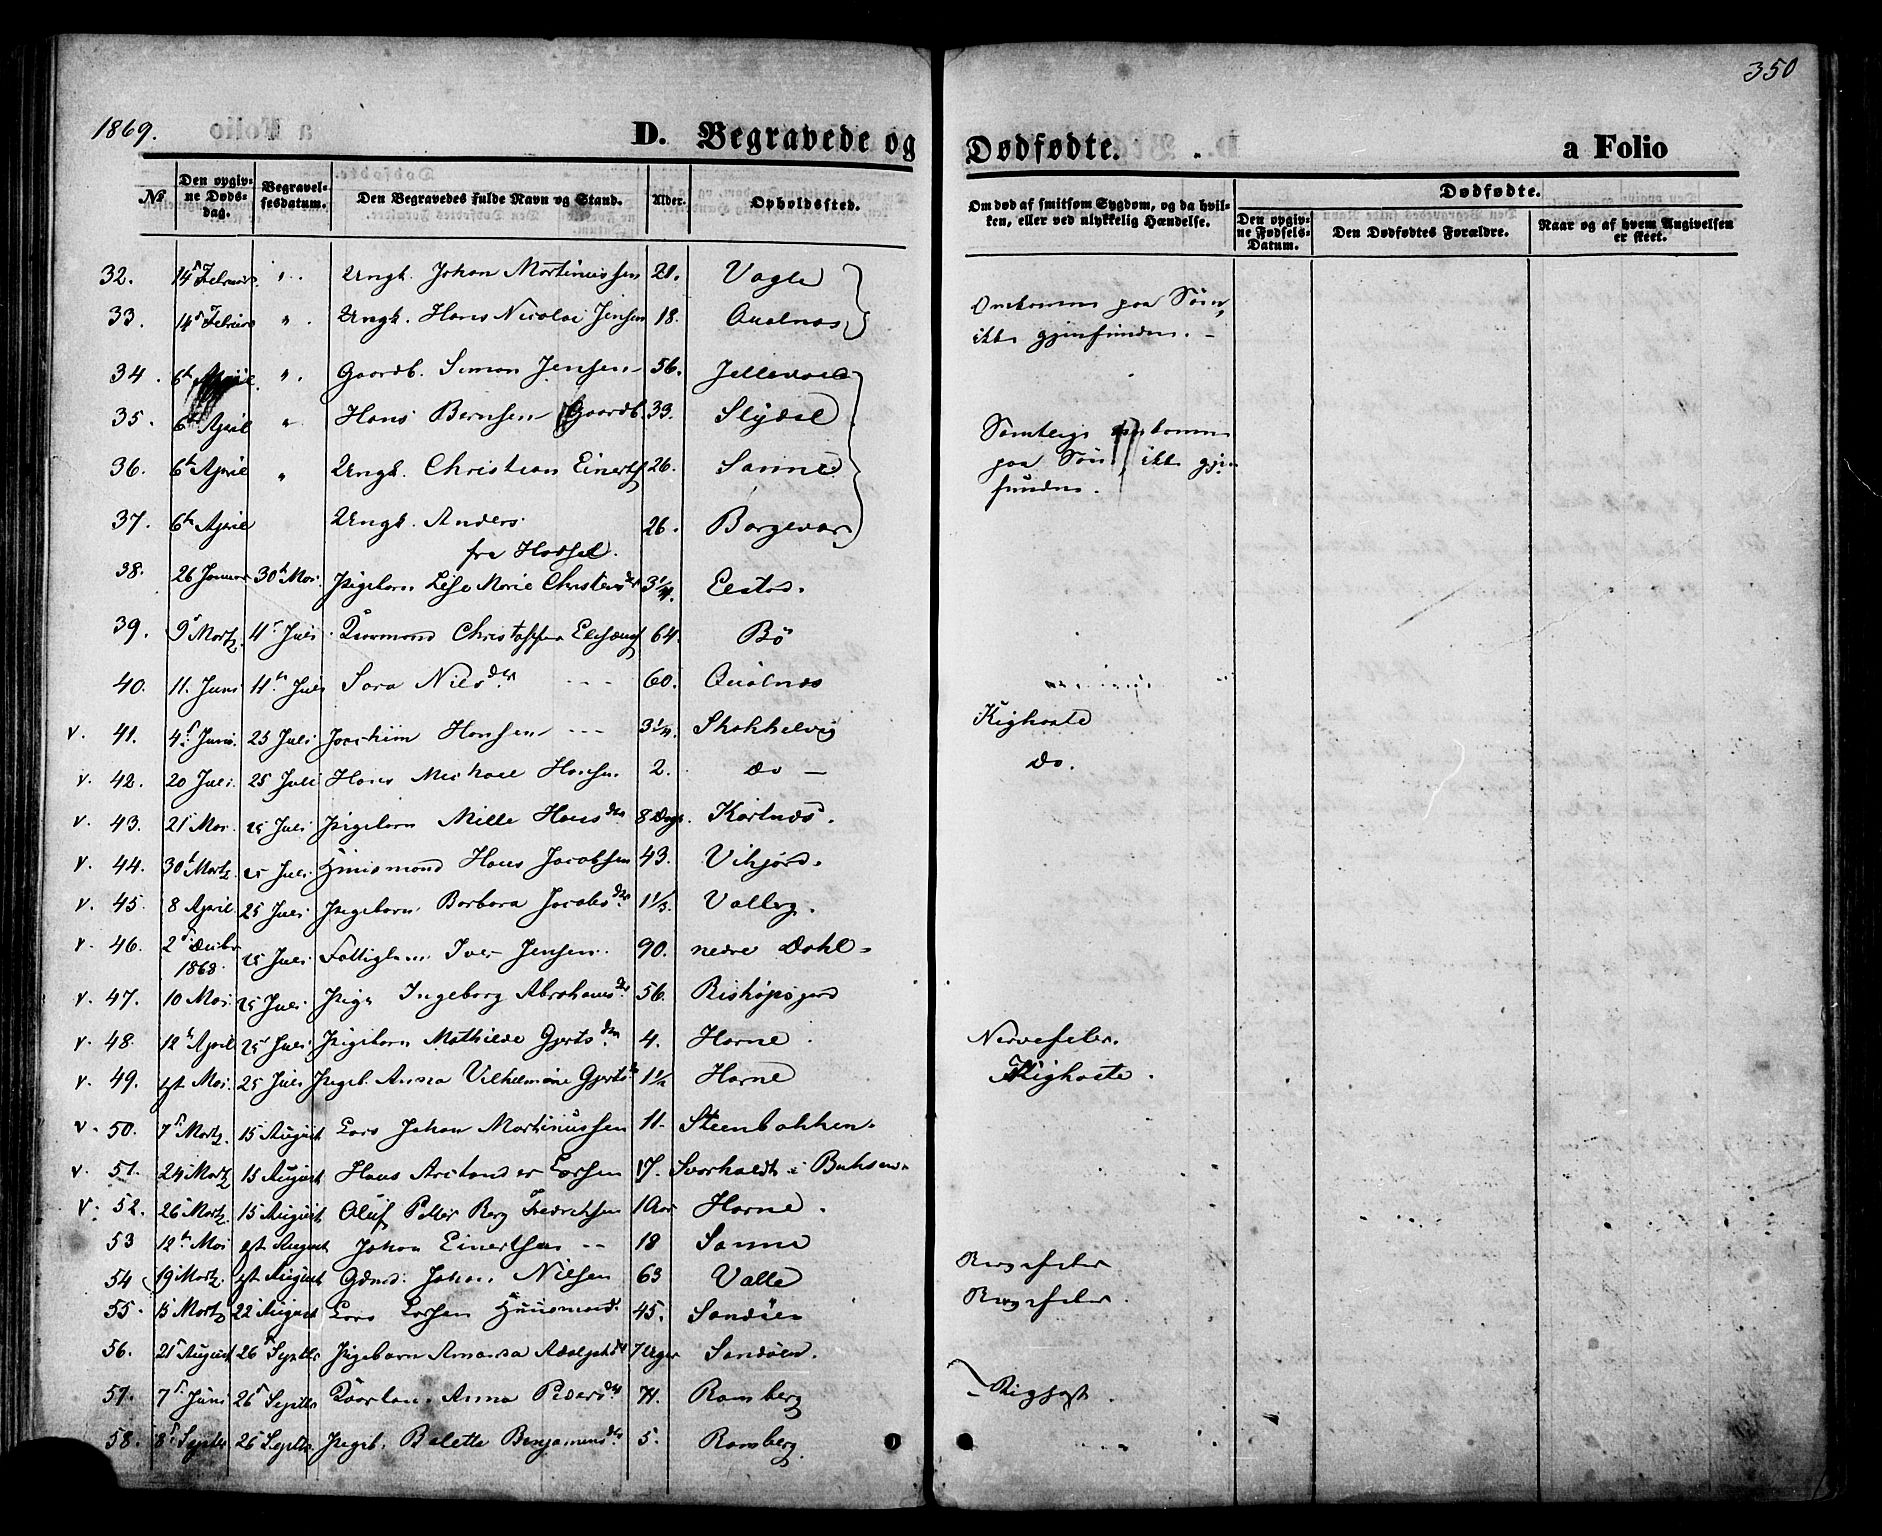 350
1869.
D. Begravede og Dødfødte.
a Folio
№
Den opgivne Dødsdag.
Begravelsesdatum.
Den Begravedes fulde Navn og Stand.
Alder.
Opholdssted.
Om død af smitsom Sygdom, og da hvilken, eller ved ulykkelig Hændelse.
Dødfødte.
Den opgivne Fødsels-Datum.
Den Dødfødtes Forældre.
Naar og af hvem Angivelsen er skeet.
32. 14 Februar " Ungk. Johan Martinussen 21. Vagle
33. 14 Februar " Ungk. Hans Nicolai Jensen 18. Qualnæs Omkommen paa Søen, ikke gjenfunden.
34. 6te April " Gaardb. Simon Jensen 56. Jellevold
35. 6te April " Hans Bernsen Gaardb. 33. Slydal Samtlige omkommen
36. 6te April " Ungk. Christian Einerts 26. Sanne paa Søen, ikke gjenfunden.
37. 6te April Ungk. Anders fra Hadsel. 26. Borgevær
38. 26 Januar 30te Mai Pigebarn Lise Marie Christensdtr 3 1/4. Eestad.
39. 9 Marts 11 Juli Kaarmand Christoffer 64. Bö
40. 11. Juni 11te Juli Sara Nilsdtr. 60. Qualnæs
v. 41. 4 Juni. 25 Juli Joachim Hansen 3 1/4. Skokkelvig Kighoste
v. 42. 20 Juli. 25 Juli Hans Michael Hansen 2. do do.
v. 43. 21 Mai. 25 Juli Pigebarn Mille Hansdtr 8 Dage. Kartnæs.
v. 44. 30te Marts. 25 Juli Huusmand Hans Jacobsen 43. Vikjord.
v. 45. 8 April 25 Juli Pigebarn Barbara Jacobsdtr. 1 1/3. Valberg.
v. 46. 2 Decbr 1868. 25 Juli Fattiglem Iver Jensen. 90. nedre Dahl
v. 47. 10 Mai. 25 Juli Pige Ingeborg Abrahamsdtr. 56. Biskopsgard
v. 48. 12te April 25 Juli Pigebarn Mathilde Gjertsdtr. 4. Horne Nervefeber.
v. 49. 1st Mai. 25 Juli Pigeb. Anna Vilhelmine Gjertsdtr 1 1/2 Horne Kighoste.
v. 50. 7 Marts. 15 August Lars Johan Martinussen 11. Steenbakken.
v. 51. 24 Marts 15 August Hans Larsen 17. Svarholdt i Buksn.
v. 52. 26 Marts. 15 August Oluf Petter Berg Fredriksen 1 Aar Horne.
53 12te Mai 1st August Johan Einertsen 18 Sanne
54 19 Marts. 1st August Gdmd. Johan Nilsen 63 Valle
55. 15 Marts 22 August Lars Larsen Huusmand. 45. Sandöen
56. 21 August 26 Septbr Pigebarn Amanda Adolphdtr 7 Uger Sandöen.
57. 7 Juni 26 Septbr Anna Pedersdtr 74. Ramberg
58. 8 Septbr 26 Septbr. Pigeb. Bolette Benjaminsdtr 5. Ramberg.